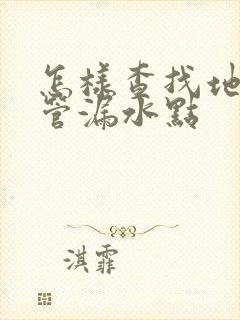 怎樣查找地
管漏水點
淇霏